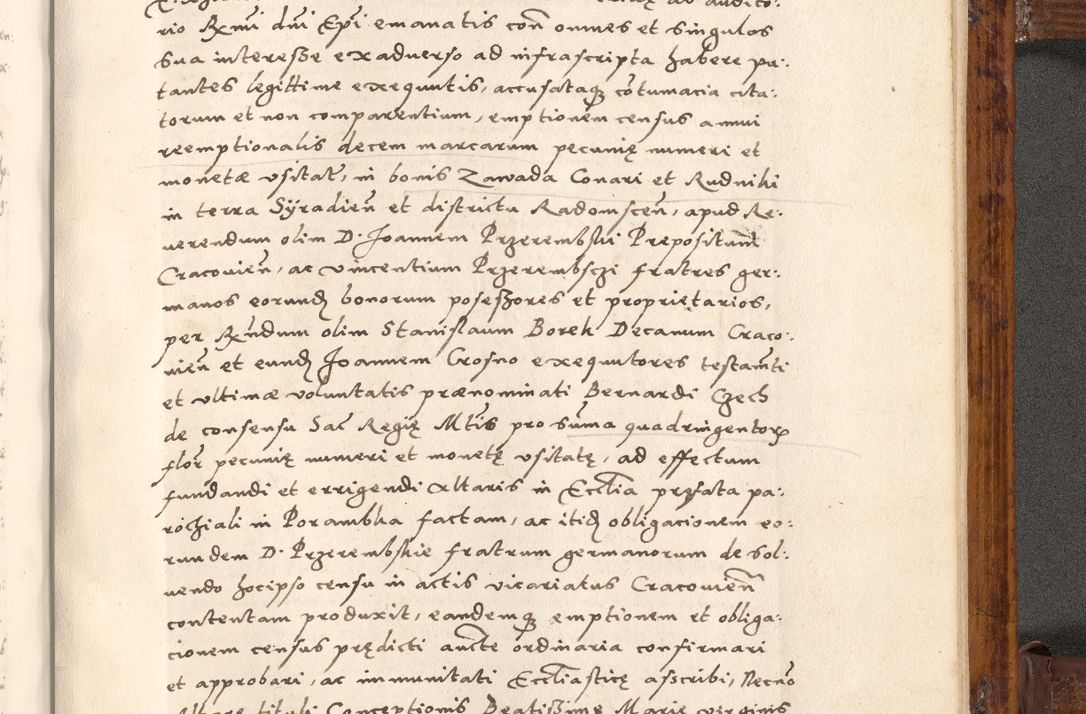 rio Rxmi dni Epi emanatis con omnes et singulos
sua interesse exaduerso ad infrascripta habere pu:
tantes legittime exequutis, accusataq cotumacia cita:
torum et non comparentium, emptionem census annui
reemptionalis decem marcarum pecunię numeri et
monetæ usitat, in bonis Zawada Conari et Rudniki
in terra Syradien et districtu Radomscen, apud Re:
uerendum olim D. Joannem Przerembski Prepositum
Cracouien, ac vincentium Przerembsczi fratres ger:
manos eorund bonorum posessores et proprietarios,
per Rndum olim Stanislaum Borek Decanum Craco:
uien et eund Joannem Crosno exequutores testamti
et ultimæ voluntatis prænominati Bernardi Czech
de consensu Sac Regię Mtis pro suma quadringentorꝝ
flor pecunię numeri et monetę usitatę, ad effectum
fundandi et errigendi altaris in Ecclia pręfata pa:
rochiali in Porambka factam, ac itid obligacionem eo:
rundem D. Przerembskie fratrum germanorum de sol:
uendo hocipso censu in actis vicariatus Cracouien
contentam produxit, eandemq emptionem et obliga:
cionem census prędicti aucte ordinaria confirmari
et approbari, ac immunitati Ecclłiasticę asscribi, Necno
Altare tituli Conceptionis Beatissime Marię virginis